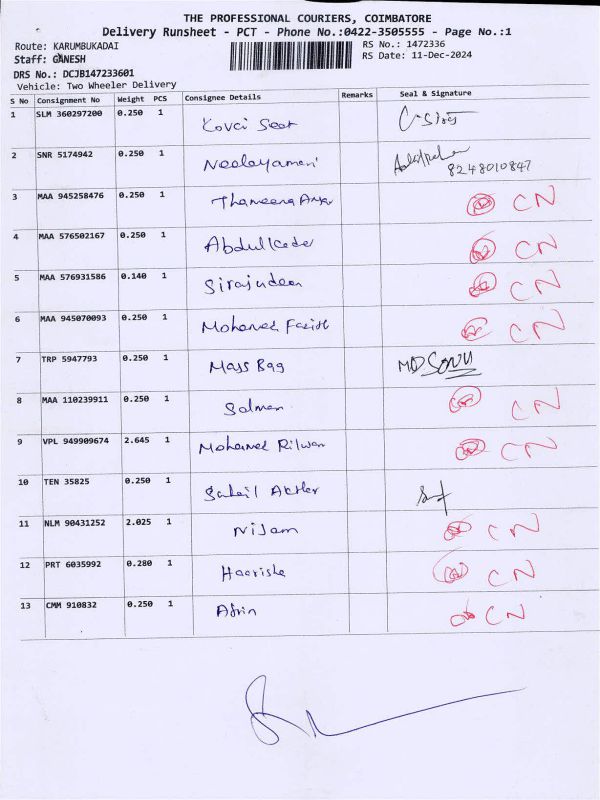 THE PROFESSIONAL COURIERS, COIMBATORE
Delivery Runsheet - PCT - Phone No.:0422-3505555 - Page No.:1
Route: KARUMBUKADAI
RS No.: 1472336
Staff: GANESH
RS Date: 11-Dec-2024
DRS No.: DCJB147233601
Vehicle: Two Wheeler Delivery
S No Consignment No Weight PCS Consignee Details Remarks Seal & Signature
1 SLM 360297200 0.250 1 Kovai Seat
2 SNR 5174942 0.250 1 Neelayameni 8248010847
3 MAA 945258476 0.250 1 Thameena CN
4 MAA 576502167 0.250 1 Abdulkader CN
5 MAA 576931586 0.140 1 Sirajudeen CN
6 MAA 945070093 0.250 1 Mohamed CN
7 TRP 5947793 0.250 1 Mass Bag MD SONU
8 MAA 110239911 0.250 1 Salman CN
9 VPL 949909674 2.645 1 Mohamed Rilwan CN
10 TEN 35825 0.250 1 Sahail Akther
11 NLM 90431252 2.025 1 Nijam CN
12 PRT 6035992 0.280 1 Haarisha CN
13 CMM 910832 0.250 1 Afrin CN